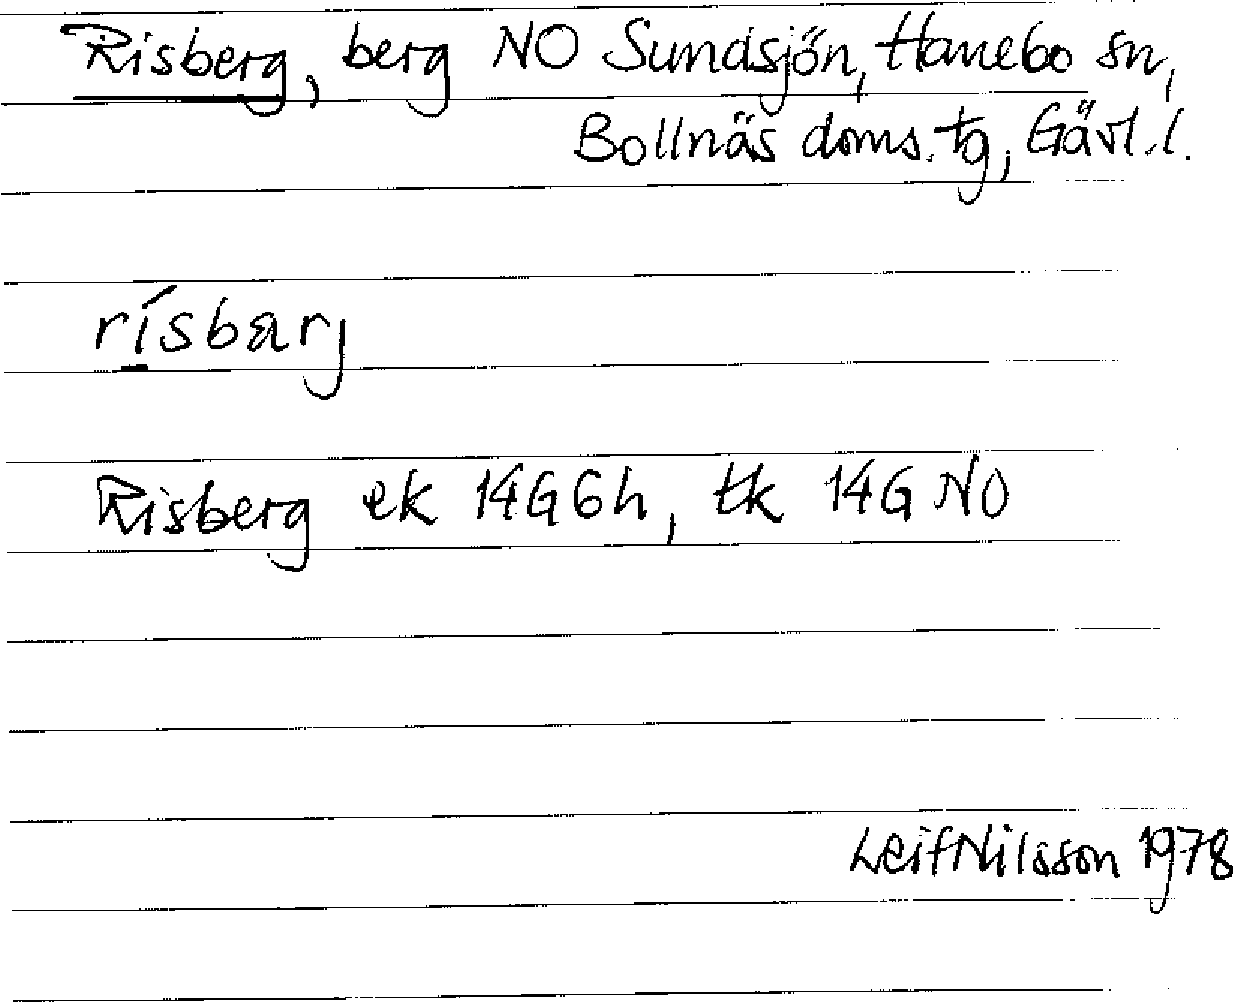 Risberg, berg NO Sundsjön, Hanebo sn,
Bollnäs doms.tg, Gävl.l.
rísbarj
Risberg ek 14G6h, tk 14G NO
Leif Nilsson 1978